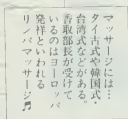 マッサージには…
タイ古式や韓国式・
台湾式などがある。
香取部長が受けて
いるのはヨーロッパ
発祥といわれる
リンパマッサージ